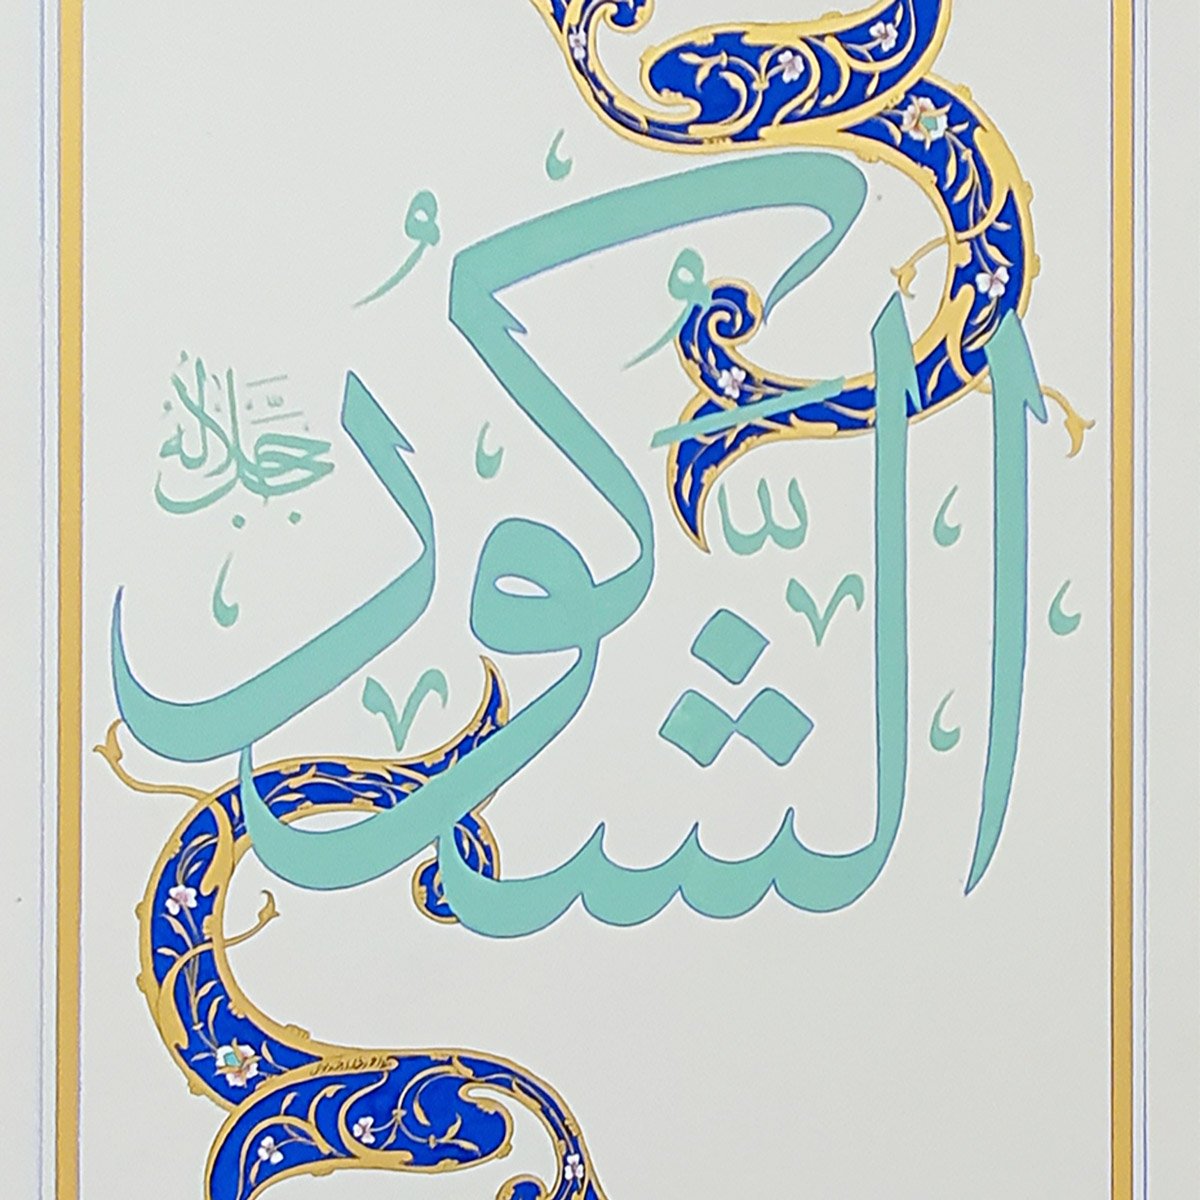 الشكور
جل جلاله